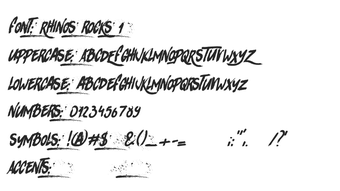 FONT: RHINOS ROCKS 1
UPPERCASE: ABCDEFGHIJKLMNOPQRSTUVWXYZ
LOWERCASE: ABCDEFGHIJKLMNOPQRSTUVWXYZ
NUMBERS: 0123456789
SYMBOLS: !@#$ &()_+-= ;:"', /?
ACCENTS: